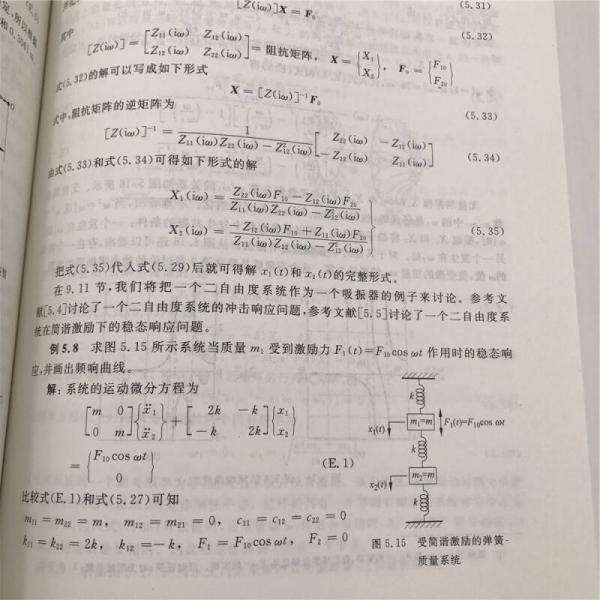 [Z(iω)]X = F₀ (5.31)
(5.32)
其中
[Z(iω)] = [Z₁₁(iω) Z₁₂(iω); Z₁₂(iω) Z₂₂(iω)] = 阻抗矩阵, X = {X₁; X₂}, F₀ = {F₁₀; F₂₀}
式(5.32)的解可以写成如下形式
X = [Z(iω)]⁻¹F₀ (5.33)
式中,阻抗矩阵的逆矩阵为
[Z(iω)]⁻¹ = 1/(Z₁₁(iω)Z₂₂(iω) − Z₁₂²(iω)) [Z₂₂(iω) −Z₁₂(iω); −Z₁₂(iω) Z₁₁(iω)] (5.34)
由式(5.33)和式(5.34)可得如下形式的解
X₁(iω) = (Z₂₂(iω)F₁₀ − Z₁₂(iω)F₂₀)/(Z₁₁(iω)Z₂₂(iω) − Z₁₂²(iω))
X₂(iω) = (−Z₁₂(iω)F₁₀ + Z₁₁(iω)F₂₀)/(Z₁₁(iω)Z₂₂(iω) − Z₁₂²(iω)) (5.35)
把式(5.35)代入式(5.29)后就可得解 x₁(t)和 x₂(t)的完整形式。
在 9.11 节,我们将把一个二自由度系统作为一个吸振器的例子来讨论。参考文
献[5.4]讨论了一个二自由度系统的冲击响应问题,参考文献[5.5]讨论了一个二自由度系
统在简谐激励下的稳态响应问题。
例 5.8 求图 5.15 所示系统当质量 m₁ 受到激励力 F₁(t)=F₁₀cos ωt 作用时的稳态响
应,并画出频响曲线。
解:系统的运动微分方程为
[m 0; 0 m]{ẍ₁; ẍ₂} + [2k −k; −k 2k]{x₁; x₂}
= {F₁₀cos ωt; 0} (E.1)
比较式(E.1)和式(5.27)可知
m₁₁ = m₂₂ = m, m₁₂ = m₂₁ = 0, c₁₁ = c₁₂ = c₂₂ = 0
k₁₁ = k₂₂ = 2k, k₁₂ =−k, F₁ = F₁₀cos ωt, F₂ = 0
k
m₁=m
x₁(t)
F₁(t)=F₁₀cos ωt
k
m₂=m
x₂(t)
k
图 5.15 受简谐激励的弹簧-
质量系统